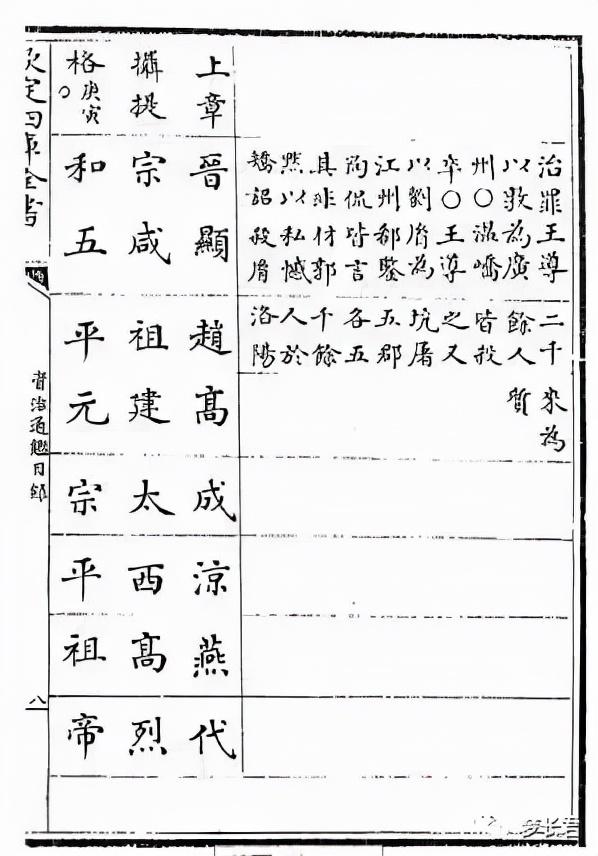 治罪王導 二千 來為
以敦為廣 餘人 質
州○溫嶠 皆殺
卒○王導 之又
以劉胤為 坑屠
江州郗鑒 五郡
陶侃皆言 各五
其非材郭 千餘
黙以私憾 人於
矯詔殺胤 洛陽
上章 晉顯 趙高 成 涼 燕 代
攝提 宗咸 祖建 太 西 高 烈
格庚寅○ 和五 平元 宗 平 祖 帝
欽定四庫全書 資治通鑑目録 八